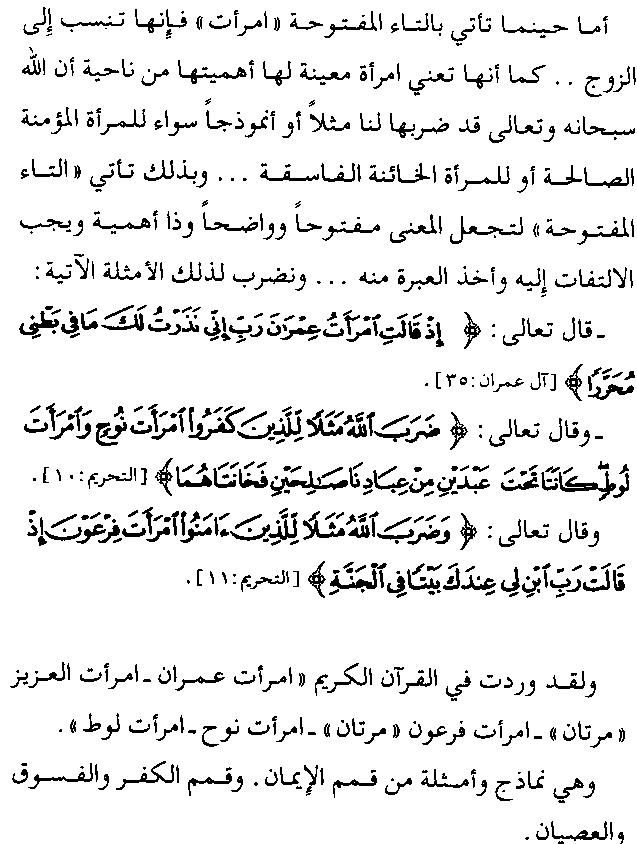 أما حينما تأتي بالتاء المفتوحة «امرأت» فإنها تنسب إلى
الزوج .. كما أنها تعني امرأة معينة لها أهميتها من ناحية أن الله
سبحانه وتعالى قد ضربها لنا مثلاً أو أنموذجاً سواء للمرأة المؤمنة
الصالحة أو للمرأة الخائنة الفاسقة ... وبذلك تأتي «التاء
المفتوحة» لتجعل المعنى مفتوحاً وواضحاً وذا أهمية ويجب
الالتفات إليه وأخذ العبرة منه ... ونضرب لذلك الأمثلة الآتية:
- قال تعالى: ﴿ إِذْ قَالَتِ ٱمْرَأَتُ عِمْرَٰنَ رَبِّ إِنِّي نَذَرْتُ لَكَ مَا فِي بَطْنِي
مُحَرَّرًا ﴾ [آل عمران: ٣٥].
- وقال تعالى: ﴿ ضَرَبَ ٱللَّهُ مَثَلًا لِّلَّذِينَ كَفَرُوا۟ ٱمْرَأَتَ نُوحٍ وَٱمْرَأَتَ
لُوطٍ كَانَتَا تَحْتَ عَبْدَيْنِ مِنْ عِبَادِنَا صَٰلِحَيْنِ فَخَانَتَاهُمَا ﴾ [التحريم: ١٠].
وقال تعالى: ﴿ وَضَرَبَ ٱللَّهُ مَثَلًا لِّلَّذِينَ ءَامَنُوا۟ ٱمْرَأَتَ فِرْعَوْنَ إِذْ
قَالَتْ رَبِّ ٱبْنِ لِي عِندَكَ بَيْتًا فِي ٱلْجَنَّةِ ﴾ [التحريم: ١١].
ولقد وردت في القرآن الكريم «امرأت عمران - امرأت العزيز
«مرتان» - امرأت فرعون «مرتان» - امرأت نوح - امرأت لوط».
وهي نماذج وأمثلة من قمم الإيمان. وقمم الكفر والفسوق
والعصيان.